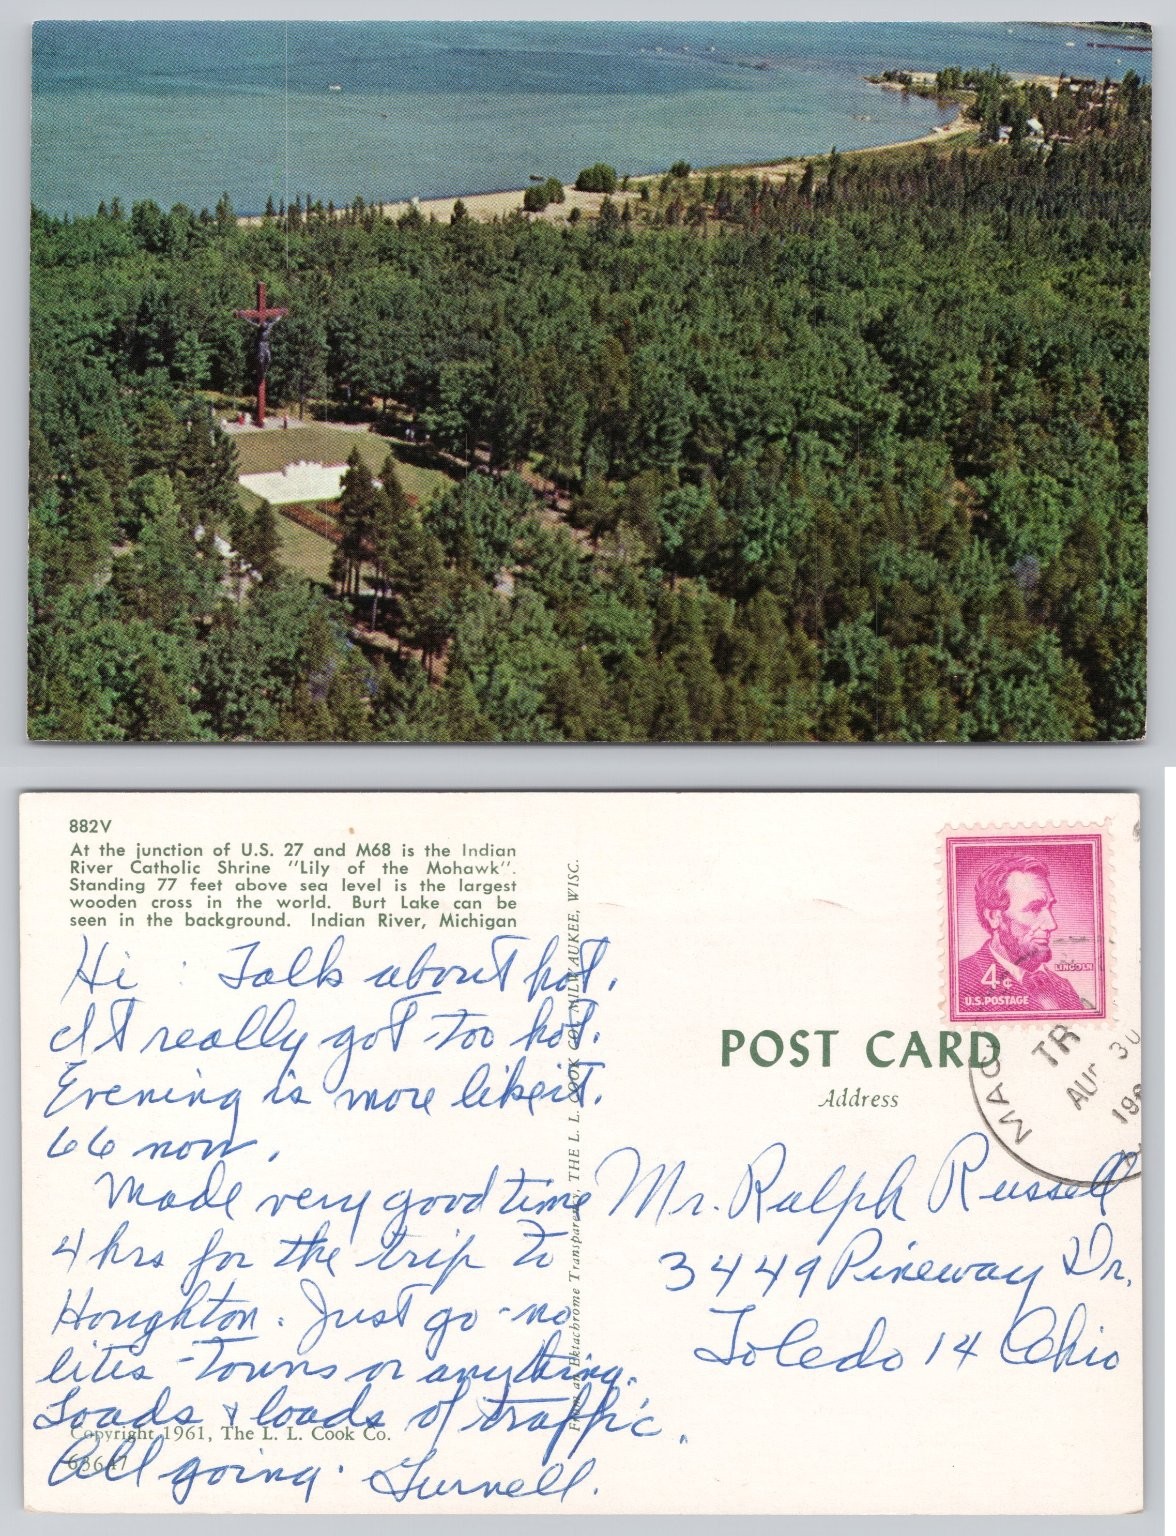 882V
At the junction of U.S. 27 and M68 is the Indian
River Catholic Shrine "Lily of the Mohawk".
Standing 77 feet above sea level is the largest
wooden cross in the world. Burt Lake can be
seen in the background. Indian River, Michigan
Hi : Talk about hot.
It really got too hot.
Evening is more like it.
66 now.
Made very good time
4 hrs for the trip to
Houghton. Just go - no
lites - towns or anything.
Loads & loads of traffic.
All going. Turnell.
Copyright 1961, The L. L. Cook Co.
From an Ektachrome Transparency THE L. L. COOK CO., MILWAUKEE, WISC.
LINCOLN
4¢
U.S. POSTAGE
POST CARD
Address
MAC
TR
AUG 30
Mr. Ralph Russell
3449 Pineway Dr.
Toledo 14 Ohio